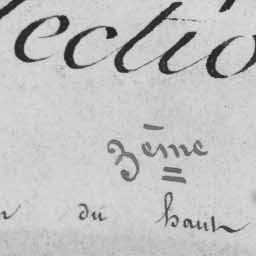 lectio
3ème
du haut